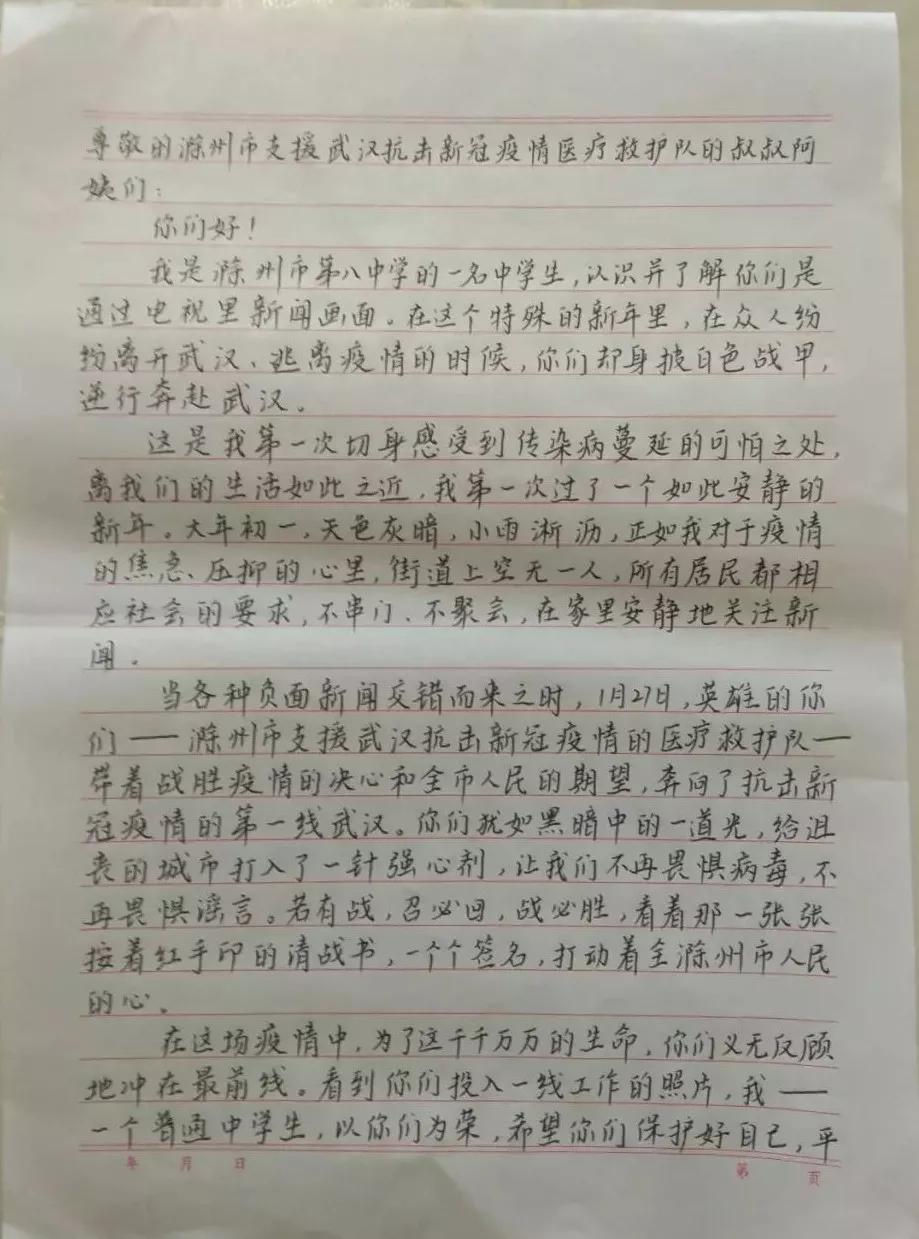 尊敬的滁州市支援武汉抗击新冠疫情医疗救护队的叔叔阿
姨们：
你们好！
我是滁州市第八中学的一名中学生，认识并了解你们是
通过电视里新闻画面。在这个特殊的新年里，在众人纷
纷离开武汉、逃离疫情的时候，你们却身披白色战甲，
逆行奔赴武汉。
这是我第一次切身感受到传染病蔓延的可怕之处，
离我们的生活如此之近，我第一次过了一个如此安静的
新年。大年初一，天色灰暗，小雨淅沥，正如我对于疫情
的焦急、压抑的心里，街道上空无一人，所有居民都相
应社会的要求，不串门、不聚会，在家里安静地关注新
闻。
当各种负面新闻交错而来之时，1月27日，英雄的你
们——滁州市支援武汉抗击新冠疫情的医疗救护队—
带着战胜疫情的决心和全市人民的期望，奔向了抗击新
冠疫情的第一线武汉。你们犹如黑暗中的一道光，给沮
丧的城市打入了一针强心剂，让我们不再畏惧病毒，不
再畏惧谣言。若有战，召必回，战必胜，看着那一张张
按着红手印的请战书，一个个签名，打动着全滁州市人民
的心。
在这场疫情中，为了这千千万万的生命，你们义无反顾
地冲在最前线。看到你们投入一线工作的照片，我——
一个普通中学生，以你们为荣，希望你们保护好自己，平
年 月 日 第 页